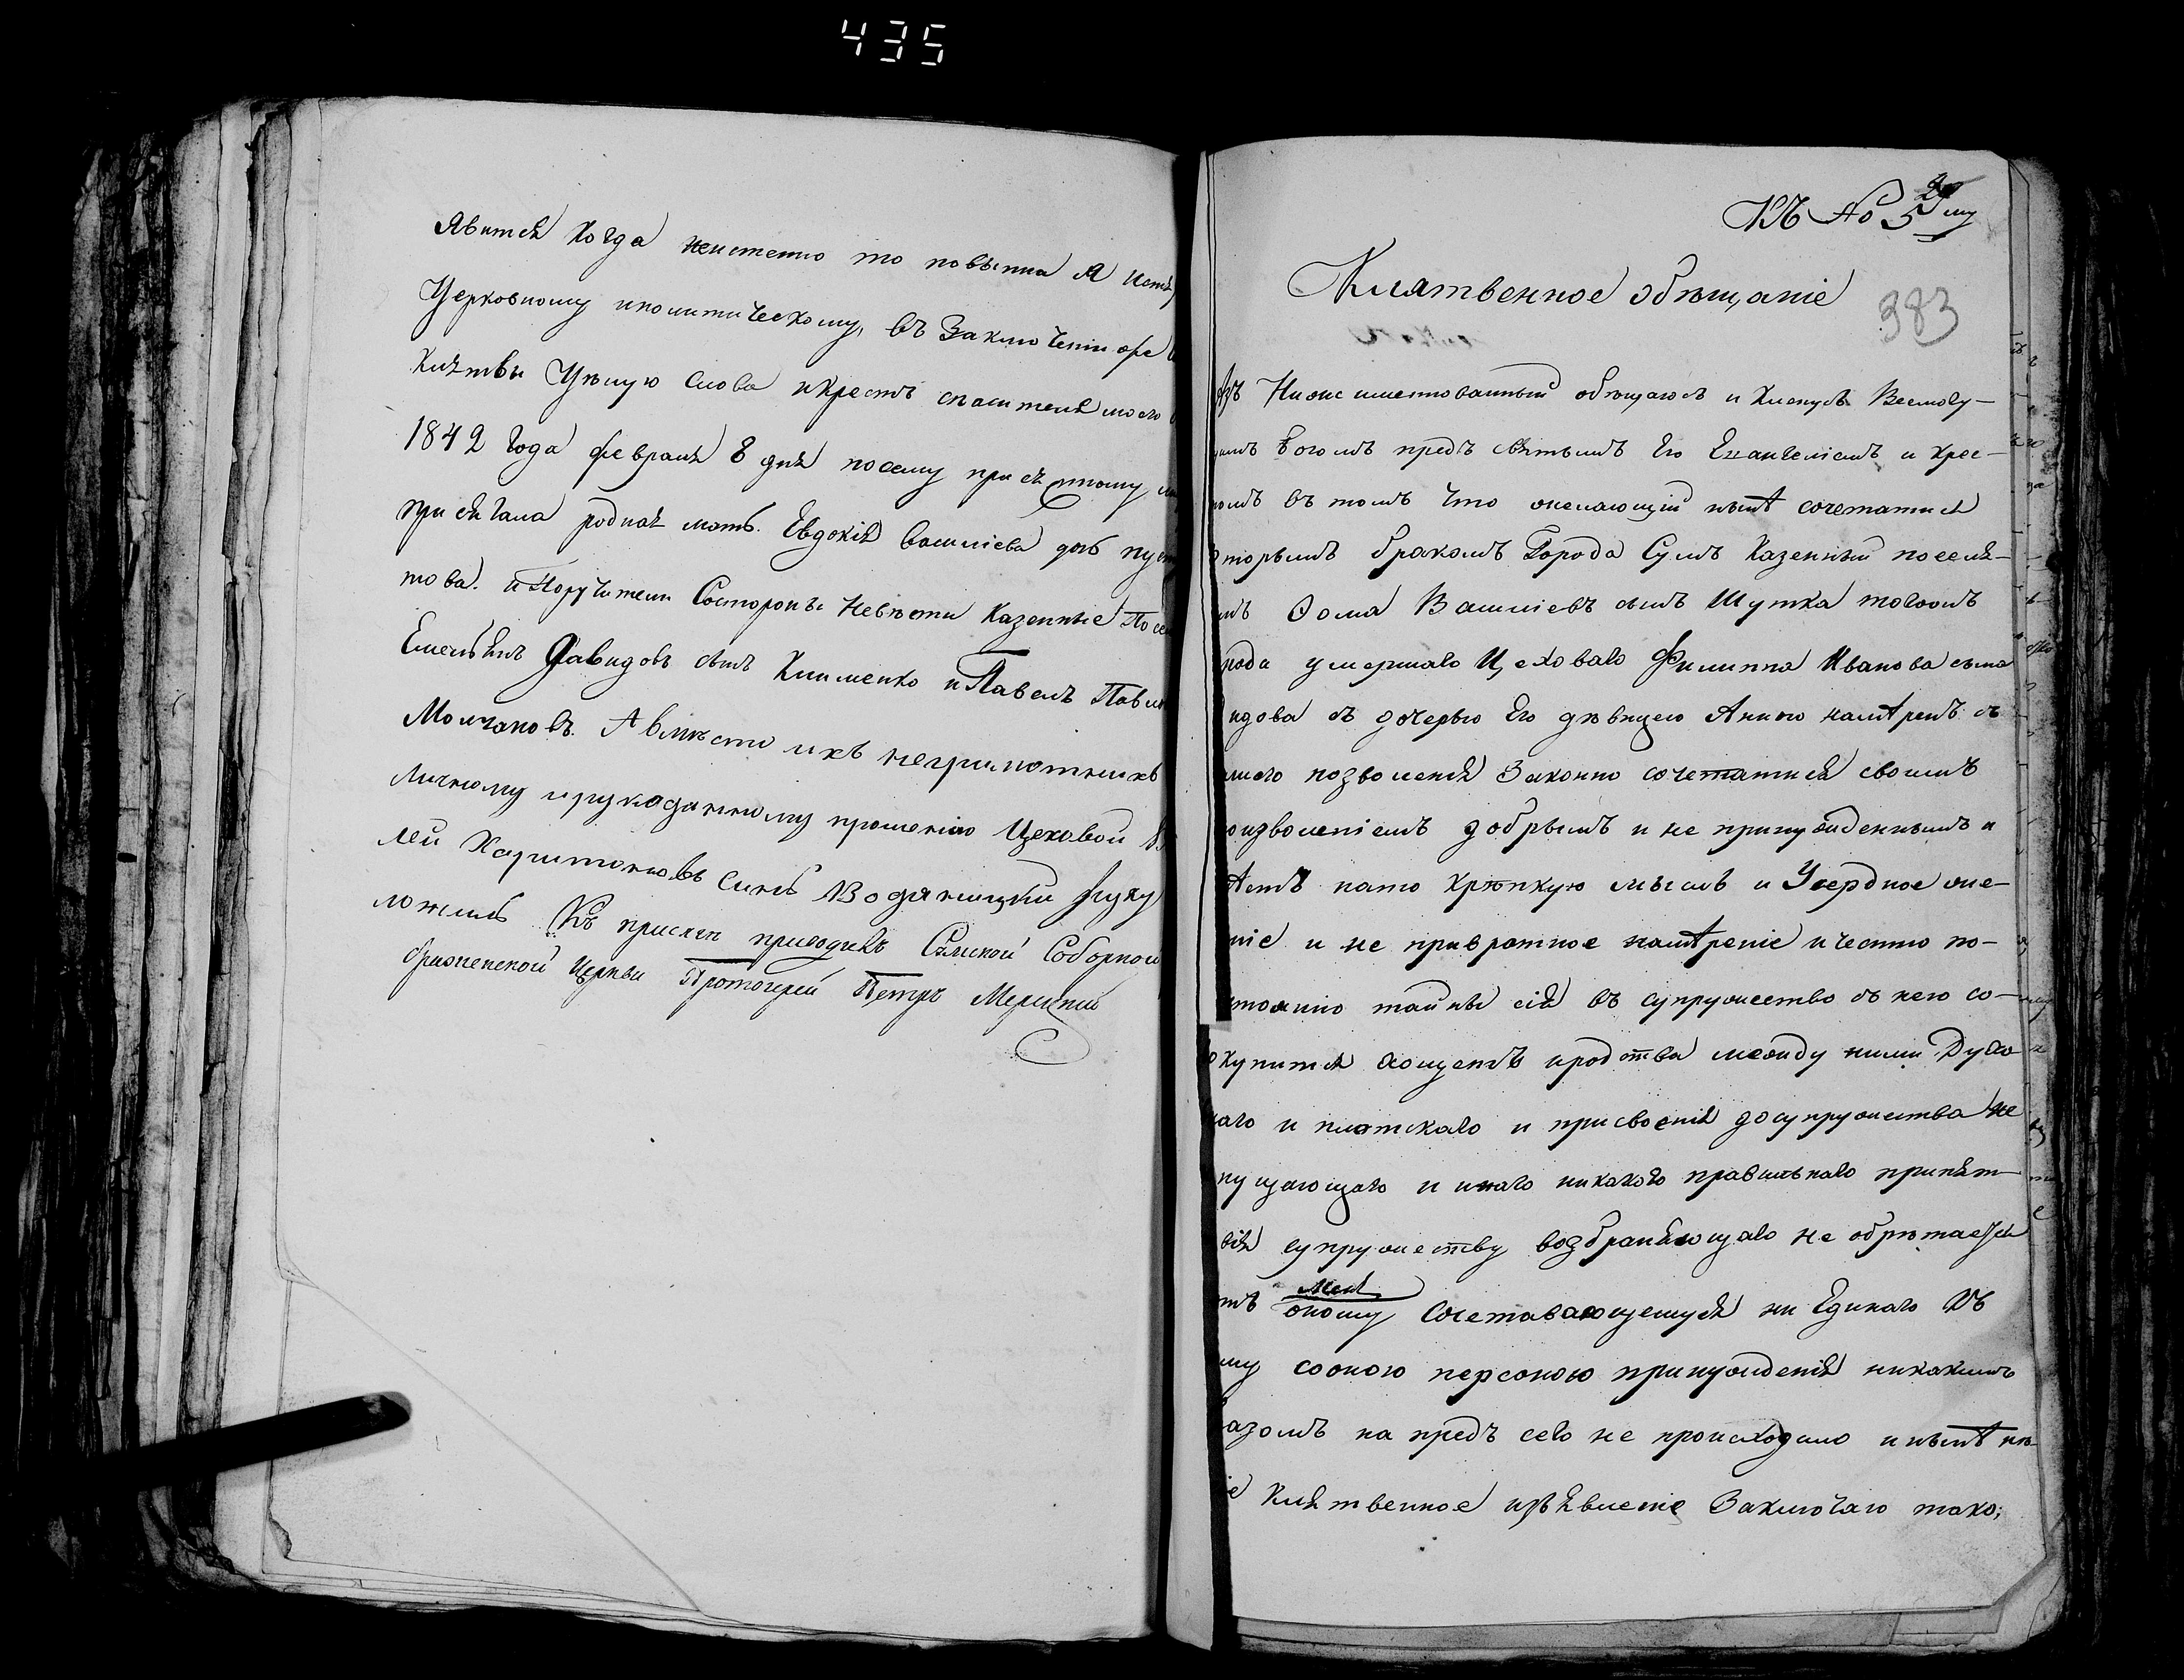 435
Явится когда неистенно то повынна я
Церковному иполитическому, въ Заключении
Клятвы Цѣлую Слова икрестъ спасителя моего
1842 Года февраля 8 дня посему присяжному
присягала родная мать. Евдокія Василіева дочь
това. и Поручители Состороны Невѣсты Казенные
Емельянъ Давидовъ сынъ Клименко и Павелъ
Молчановъ. А вмѣсто ихъ неграмотныхъ
личному ирукоданному прошенію Цеховой
лей Харитоновъ Сынъ Водяницкий руку
ложилъ Къ присягѣ приводилъ Сумской Соборной
ображенской Церкви Протоиерей Петръ
Къ № 5 му
Клятвенное обѣщаніе
383
Азъ Ниже имянованный обѣщаюсь и Кленусь Всемогу-
щимъ Богомъ предъ святымъ Его Евангеліемъ и Крес-
томъ въ томъ Что желающій нынѣ сочетатися
вторымъ бракомъ Города Сумъ Казенный поселя-
нинъ Ѳома Василіевъ сынъ Шутка тогожъ
рода умершаго Цеховаго Филиппа Иванова сына
идова съ дочерью Его дѣвицею Анною намѣренъ съ
моего позволенія Законно сочетатися своимъ
оизволеніемъ добрымъ и не принужденнымъ и
мѣетъ нато Крѣпкую мысль и Усердное же-
ніе и не привратное намѣреніе ичестно по-
стоянно тайны сія въ супружество съ нею со-
окупится хощетъ иродства между ними Духо
наго и плотскаго и присвоенія досупружества не
пущающаго и инаго никакого правильнаго припят-
вія супружеству возбраняющаго не обрѣтается
тъ оному Сочетавающемуся ни Единаго Къ
му сооною персоною принужденія никакимъ
азомъ на предъ сего не происходило и нынѣ
е Клятвенное изъявление Заключаю тако;